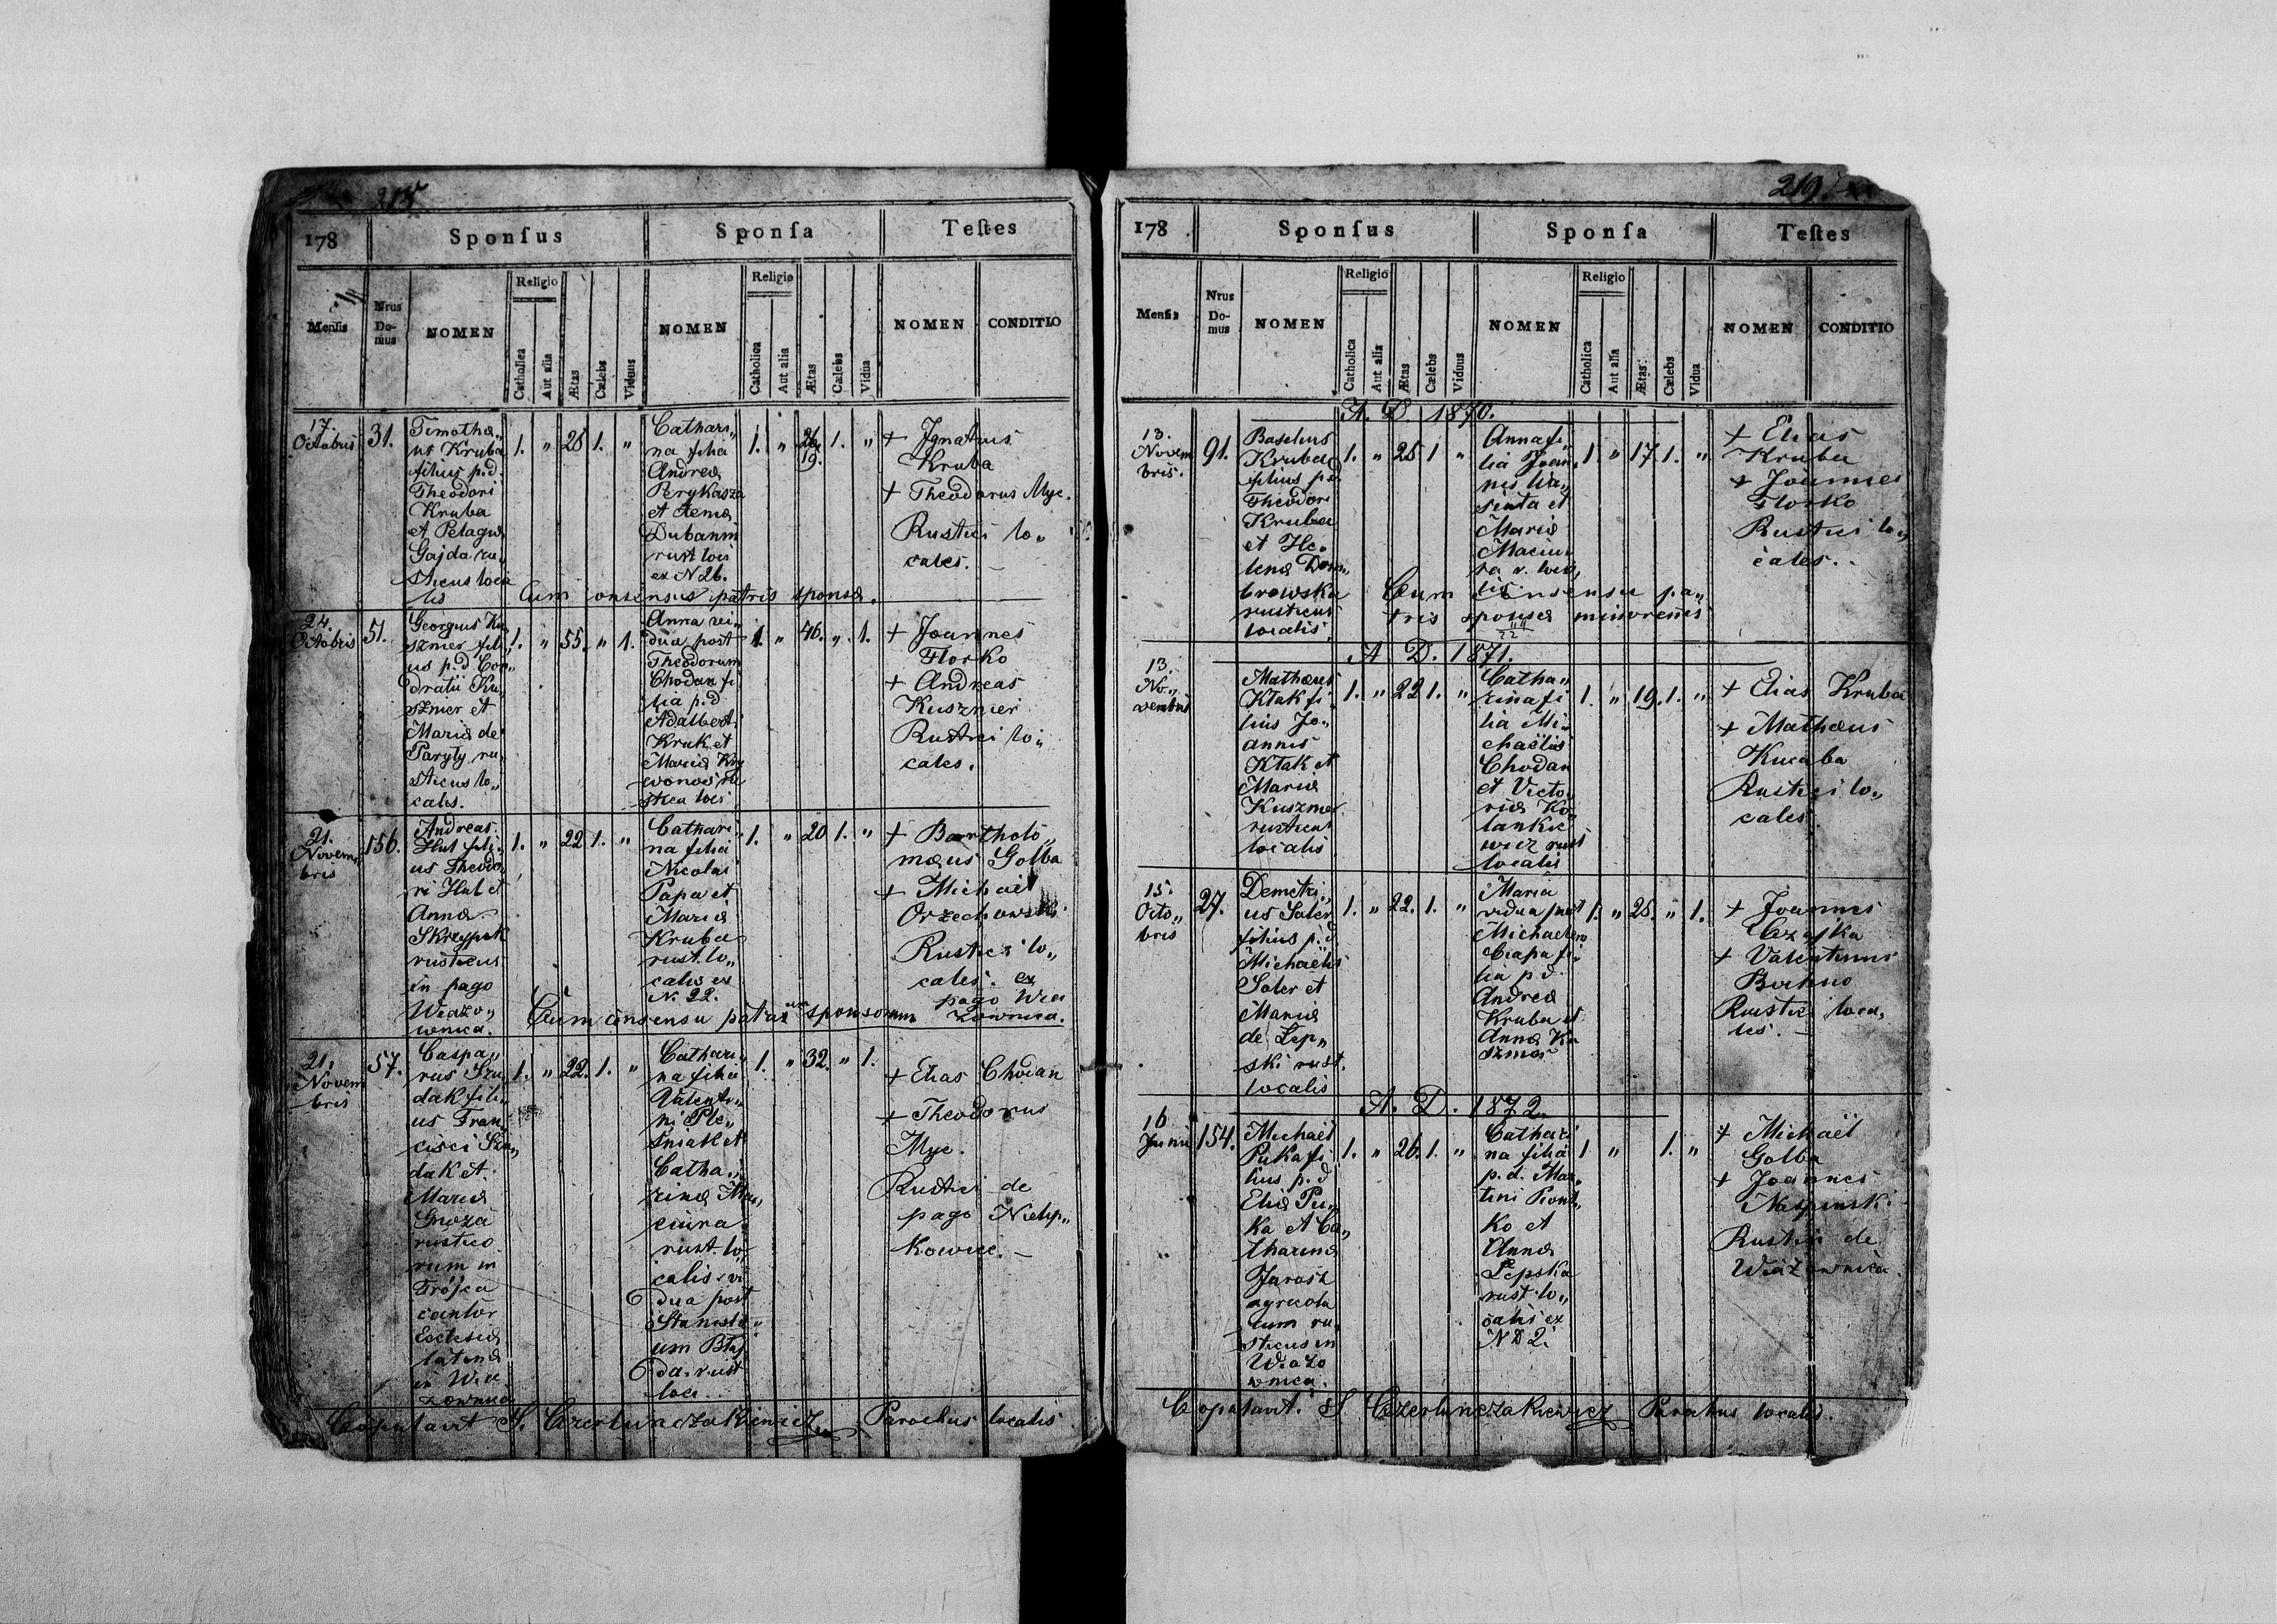 215
178
Sponſus
Sponſa
Teſtes
Menſis
Nrus Domus
NOMEN
Religio
Catholica
Aut alia
Ætas
Cælebs
Viduus
NOMEN
Religio
Catholica
Aut alia
Ætas
Cælebs
Vidua
NOMEN
CONDITIO
17.
Octobris
31.
Timothe„
us Kruba
filius p.d.
Theodori
Kruba
et Pelagia
Gajda ru„
sticus loca
lis
1. „ 25 1. „
Cathari„
na filia
Andrea
Perykasza
et
Dubanin
rust loci
ex N 26.
1. „ 26 19. 1. „
+ Ignatius
Kruba
+ Theodorus Myc.
Rustici lo„
cales. –
Cum consensus patris sponsa.
24.
Octobris
51.
Georgius Ku
sznier fili„
us p.d. Con„
dratii Ku„
sznier et
Maria de
Paryty ru„
sticus lo„
cales.
1. „ 55. „ 1.
Anna vi„
dua post
Theodorum
Chodan fi
lia p.d
Adalberti
Kruk et
Maria Kry
wonos ru
stica loci
1. „ 46. „ 1.
+ Joannes
Florko
+ Andreas
Kusznier
Rustici lo„
cales.
21.
Novem„
bris
156.
Andreas
Hut fili„
us Theodo„
ri Hut et
Anna
Skrzypek
rusticus
in pago
Wiazo„
wnica.
1. „ 22 1. „
Cathari„
na filia
Nicolai
Papa et
Maria
Kruba
rust. lo„
calis ex
N. 22.
1. „ 20 1. „
+ Bartholo„
mæus Golba
+ Michael
Orzechowski
Rustici lo„
cales. ex
pago Wia
zownica.
Cum consensu patrum sponsorum
21.
Novem
bris
57.
Caspa„
rus Szu„
dak fili„
us Fran„
cisci Szu„
dak et
Maria
Gnoza
rustico
rum in
Trójca
cantor
Ecclesia
latina
in Wia
zownica
1. „ 22. 1. „
Cathari„
na filia
Valenti„
ni Ple„
śniak et
Catha„
rina Ma„
ciura
rust. lo„
calis vi
dua post
Stanisla„
um Błaj
da rust
loci.
1. „ 32. „ 1.
+ Elias Chodan
+ Theodorus
Myc.
Rustici de
pago Nielip„
kowice. –
Copulavit S. Czerlunczakiewicz Parochus localis
219.
178
Sponſus
Sponſa
Teſtes
Menſis
Nrus Domus
NOMEN
Religio
Catholica
Aut alia
Ætas
Cælebs
Viduus
NOMEN
Religio
Catholica
Aut alia
Ætas
Cælebs
Vidua
NOMEN
CONDITIO
A. D. 1870.
13.
Novem
bris.
91.
Basilius
Kruba
filius p.d
Theodori
Kruba
et He„
lena Dom„
browska
rusticus
localis.
1. „ 25 1 „
Anna fi„
lia Joan„
nis
et
Maria
Maciu„
ra r. loca
lis
1. „ 17 1. „
+ Elias
Kruba
+ Joannes
Florko
Rustici lo„
cales. –
Cum consensu pa„
tris sponsa minorennis
A. D. 1871.
13.
No„
vembris
Mathæus
Ktak fi„
lius Jo„
annis
Ktak et
Maria
Kuszner
rusticus
localis
1. „ 22 1. „
Catha„
rina fi
lia Mi„
chaëlis
Chodan
et Victo„
ria Ko„
lankie
wicz rust
localis
1. „ 19. 1. „
+ Elias Kruba
+ Mathæus
Kucaba
Rustici lo„
cales.
15.
Octo„
bris
27.
Demetri„
us Soler
filius p.d.
Michaëlis
Soler et
Maria
de Lep„
ski rust.
localis
1. „ 22. 1. „
Maria
vidua post
Michaelem
Ciapa fi„
lia p.d.
Andrea
Kruba et
Anna Ku
szmar
1. „ 25. „ 1.
+ Joannes
Czajka
+ Valentinus
Bochno
Rustici loca„
les. –
A. D. 1872.
16
Junii
154.
Michaël
Pukafi
lius p.d
Elia Pu„
ka et Ca„
tharina
Jarosz
agricola
tum ru„
sticus in
Wiazo
wnica.
1. „ 26. 1. „
Cathari
na filia
p.d. Mar„
tini Piont„
ko et
Anna
Lepska
rust. lo„
calis ex
N D 2.
1 „ 1. „
+ Michaël
Golba
+ Joannes
Naspinski
Rustici de
Wiazownica
Copulavit. S Czerlunczakiewicz Parochus localis.